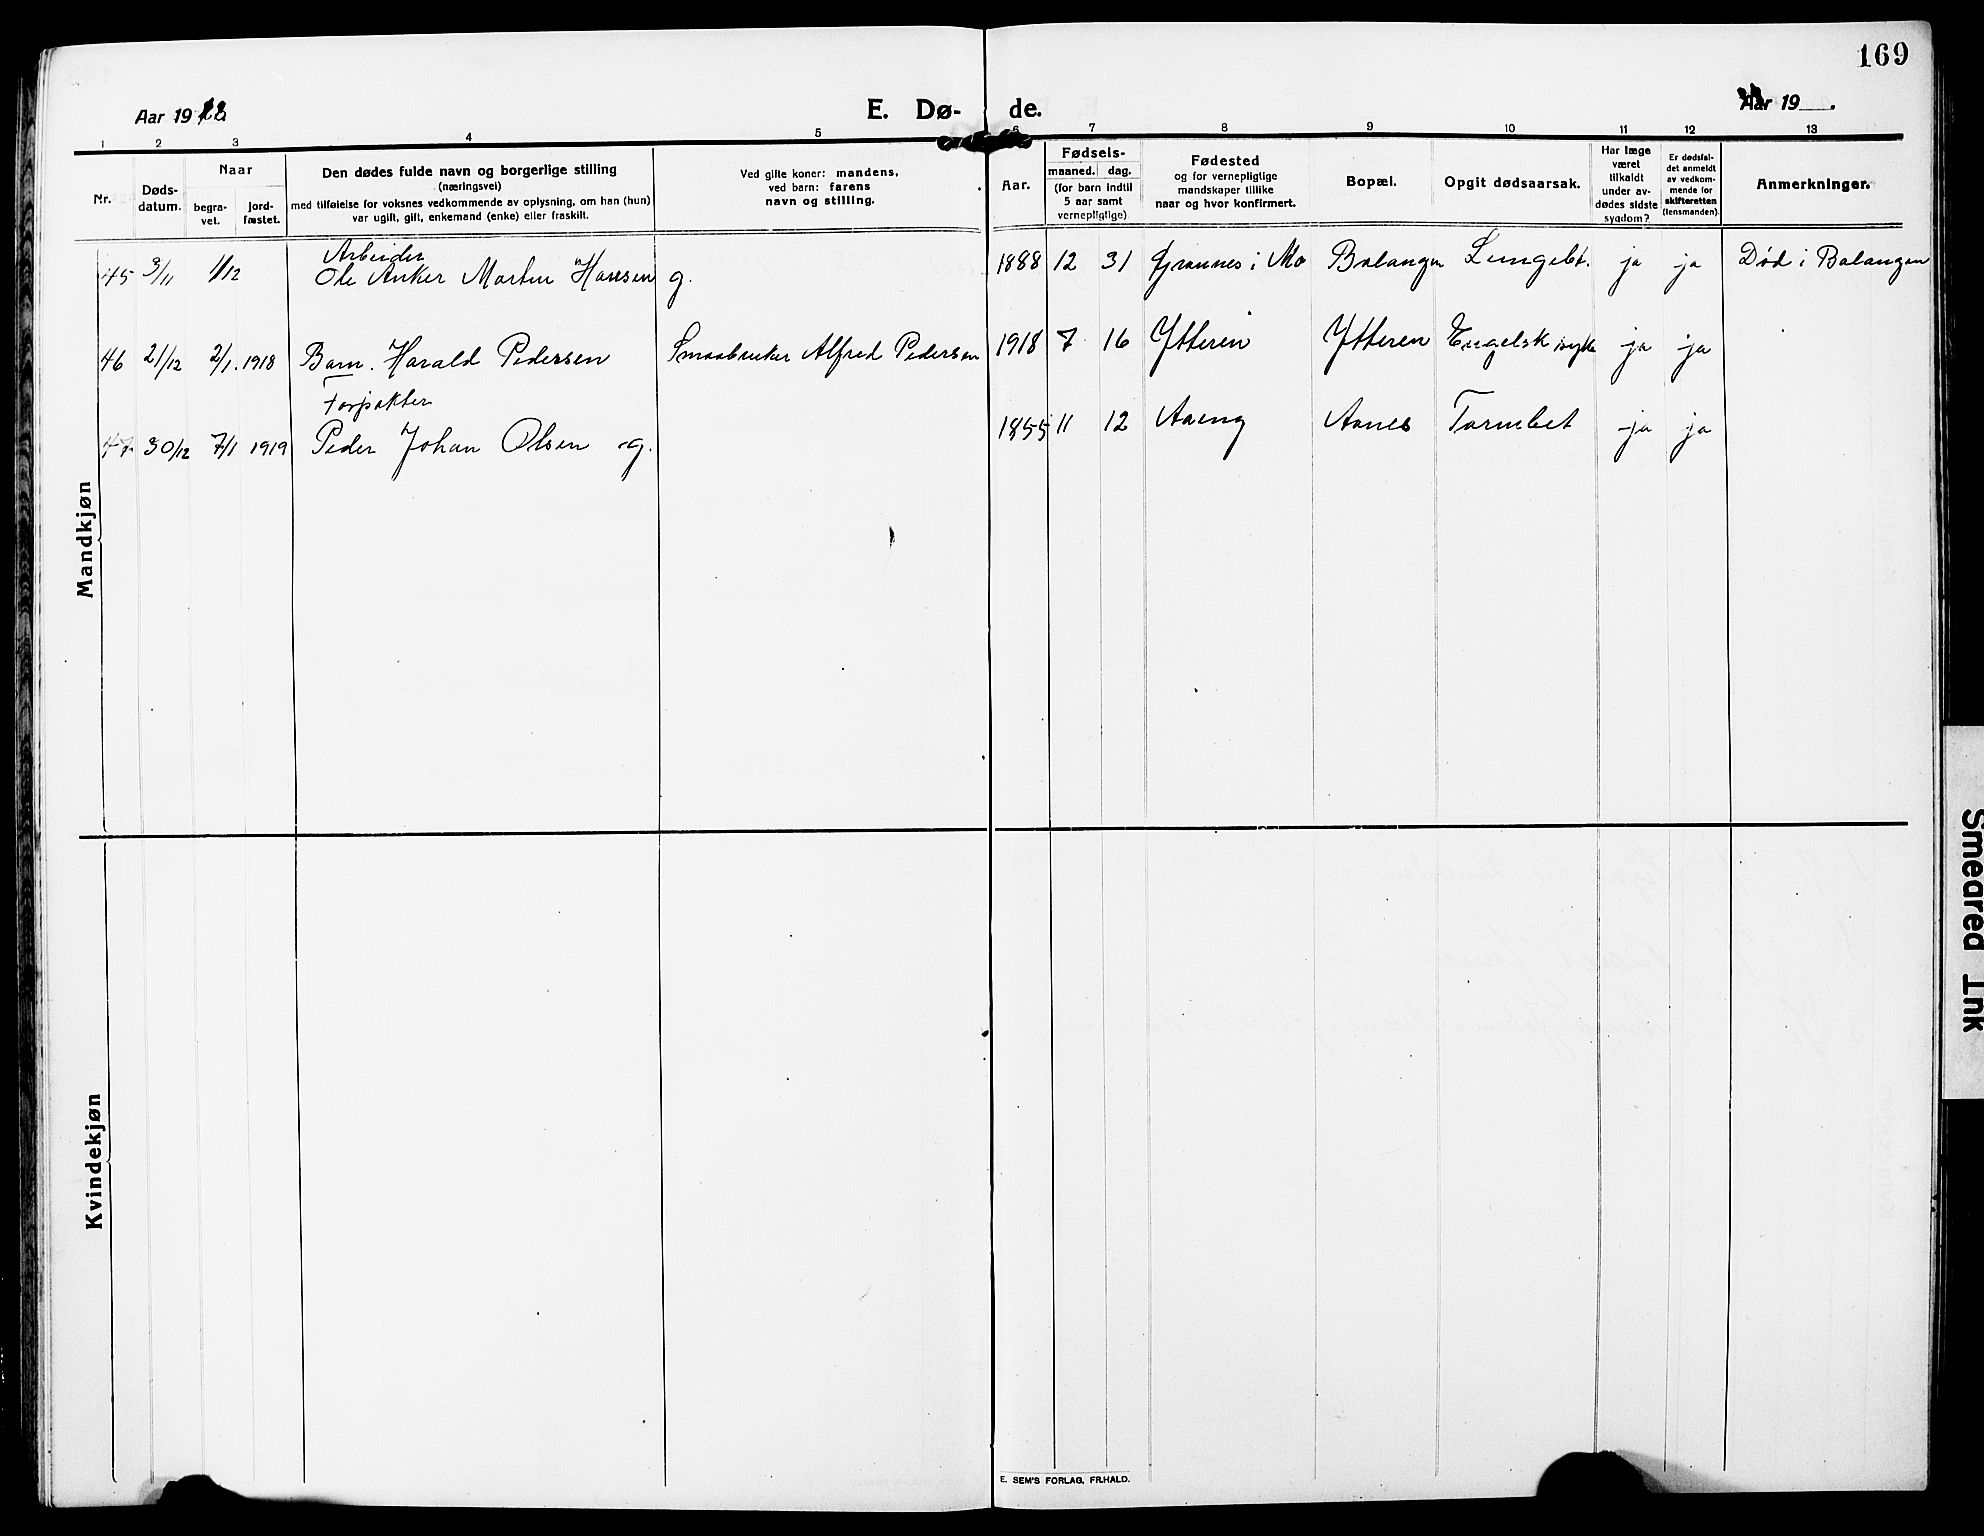 169
Aar 1918
E. Dø-
de.
Aar 19
1 2 3 4 5 6 7 8 9 10 11 12 13
Nr.
Døds-
datum.
Naar
begra-
vet.
jord-
fæstet.
Den dødes fulde navn og borgerlige stilling
(næringsvei)
med tilføielse for voksnes vedkommende av oplysning, om han (hun)
var ugift, gift, enkemand (enke) eller fraskilt.
Ved gifte koner: mandens,
ved barn: farens
navn og stilling.
Aar.
Fødsels-
maaned. dag.
(for barn indtil
5 aar samt
vernepligtige)
Fødested
og for vernepligtige
mandskaper tillike
naar og hvor konfirmert.
Bopæl.
Opgit dødsaarsak.
Har læge
været
tilkaldt
under av-
dødes sidste
sygdom?
Er dødsfal-
det anmeldt
av vedkom-
mende for
skifteretten
(lensmanden).
Anmerkninger.
Mandkjøn
Arbeider
45 3/11 1/12 Ole Anker Martin Hansen g. 1888 12 31 Grønnes i Mo Balangen Lungebt. ja ja Død i Balangen
46 21/12 2/1. 1918 Barn. Harald Pedersen Smaabruker Alfred Pedersen 1918 7 16 Ytteren Ytteren Engelsk syke ja ja
Forpakter
47 30/12 7/1 1919 Peder Johan Olsen g. 1855 11 12 Aaeng Aanes Tarmbet ja ja
Kvindekjøn
E. SEM'S FORLAG, FR.HALD.
Smeared Ink